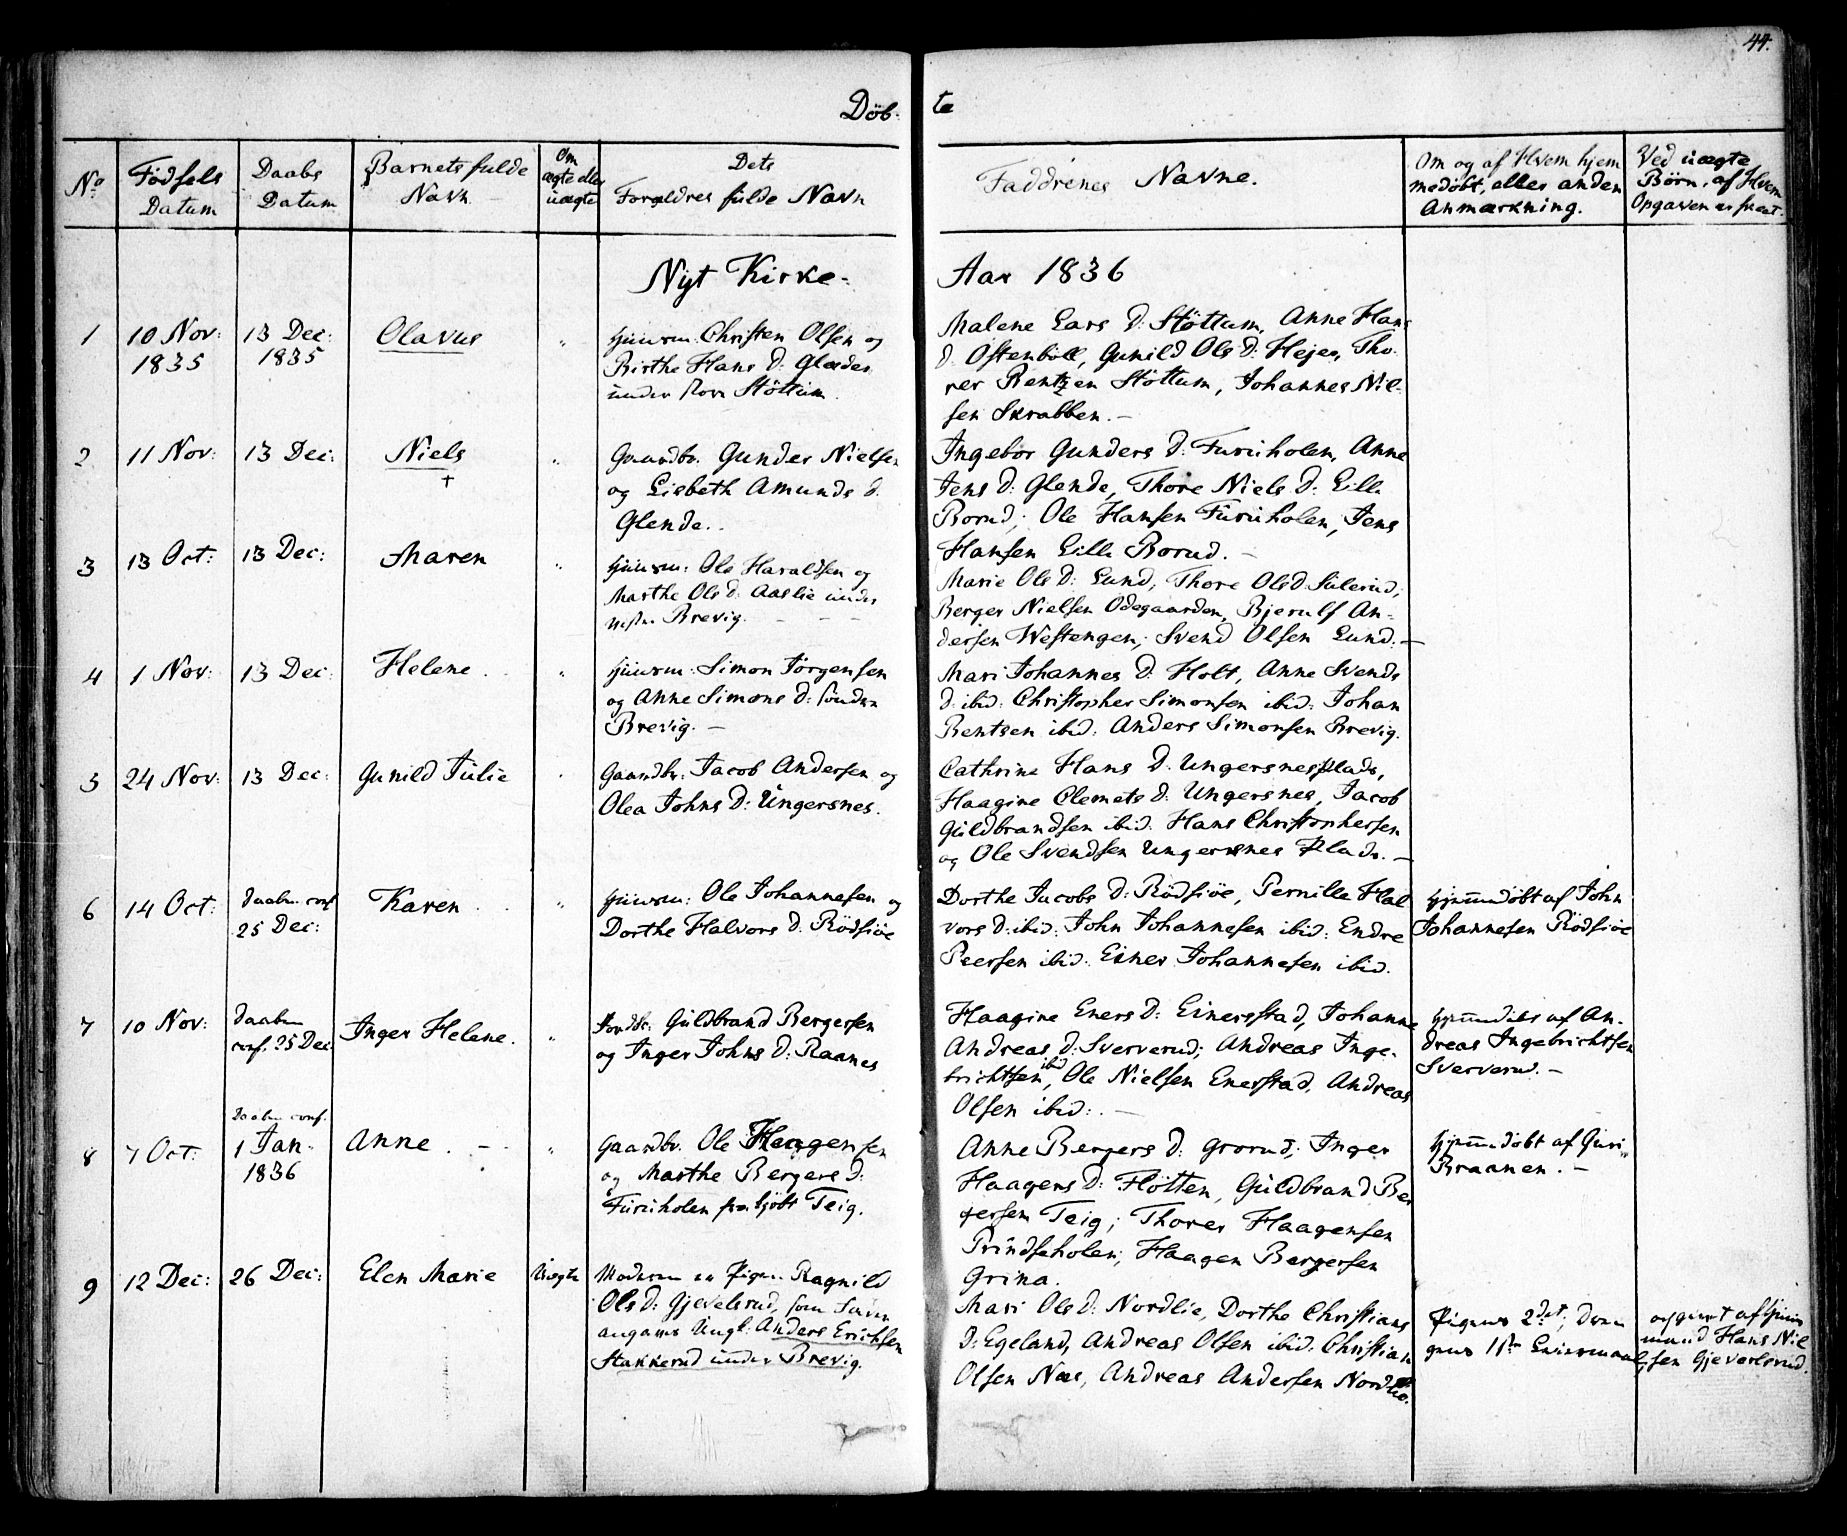 44.
Döb- te
No
Födsels Datum
Daabs Datum
Barnets fulde Navn
Om ægte eller uægte
Dets Forældres fulde Navn
Faddrenes Navne.
Om og af Hvem hjem medøbt, eller anden Anmærkning.
Ved uægte Börn, af Hvem Opgaven er skeet.
Nyt Kirke- Aar 1836
1
10 Nov: 1835
13 Dec: 1835
Olavus
"
Huusm: Christen Olsen og
Birthe Hans D: Glæden
under store Stöttum.
Malene Lars D: Stöttum, Anne Hans
D. Ostenböll, Gunild Ols D: Hejer, Tho-
rer Bentzen Stöttum, Johannes Niel-
sen Skrabben. -
2
11 Nov:
13 Dec:
Niels
+
"
Gaardbr. Gunder Nielsen
og Lisbeth Amunds D.
Glende.
Ingebor Gunders D: Furuholen, Anne
Jens D: Glende, Thore Niels D: Lille
Borud; Ole Hansen Furuholen, Jens
Hansen Lille Borud. -
3
13 Oct:
13 Dec:
Maren
"
Huusm: Ole Haraldsen og
Marthe Ols D: Aaslie under
Brevig.
Marie Ols D: Lund, Thore Ols D: Sulerud,
Berger Nielsen Odegaarden, Bjerulf An-
dersen Westengen, Svend Olsen Lund. -
4
1 Nov:
13 Dec:
Helene
"
Huusm: Simon Jörgensen
og Anne Simons D: söndre
Brevig. -
Mari Johannes D: Holt, Anne Svends
D: ibid: Christopher Simonsen ibid: Johan
Bentsen ibid: Anders Simonsen Brevig.
5
24 Nov:
13 Dec:
Gunild Julie
Gaardbr: Jacob Andersen og
Olea Johns D: Ungersnes.
Cathrine Hans D: Ungersnesplads,
Haagine Clemets D: Ungersnes, Jacob
Guldbrandsen ibid. Hans Christophersen
og Ole Svendsen Ungersnes Plads. -
6
14 Oct:
Daaben conf 25 Dec:
Karen
"
Huusm: Ole Johannesen og
Dorthe Halvors D: Rödsiöe
Dorthe Jacobs D: Rödsiöe, Pernille Hal
vors D: ibid: John Johannesen ibid: Endre
Peersen ibid: Einer Johannesen ibid.
Hjemmedöbt af John
Johannesen Rödsiöe
7
10 Nov:
Daaben conf. 25 Dec
Inger Helene.
"
Guldbrand Bergersen
og Inger Johns D: Raanes
Haagine Eners D: Einerstad, Johanne
Andreas D: Sververud; Andreas Inge-
brichtsen ibid, Ole Nielsen Enerstad, Andreas
Olsen ibid: -
Hjemmedöbt af An-
dreas Ingebrichtsen
Sververud. -
8
7 Oct:
Daaben conf.
1 Jan-
1836
Anne. -
"
Gaardbr. Ole Haagensen
og Marthe Bergers D:
Furuholen Teig.
Anne Bergers D: Grorud, Inger
Haagens D: Flötten, Guldbrand Ber
gersen Teig; Thorer Haagensen
Prindseholen; Haagen Bergersen
Grina.
Hjemmedöbt af Guri
Braanen. -
9
12 Dec:
26 Dec:
Elen Marie
Uægte
Moderen er Pigen Ragnild
Ols D: Gjevelsrud, som Fader
angaves Ungk: Anders Erichsen
Stakkerud under Brevig.
Mari Ols D: Nordlie, Dorthe Christians
D: Egeland, Andreas Olsen ibid. Christian
Olsen Næs, Andreas Andersen Nordlie.
Pigens 2det; Dren
gens 1ste Leiermaal,
opgivet af Huus
mand Hans Niel
sen Gjevelsrud.